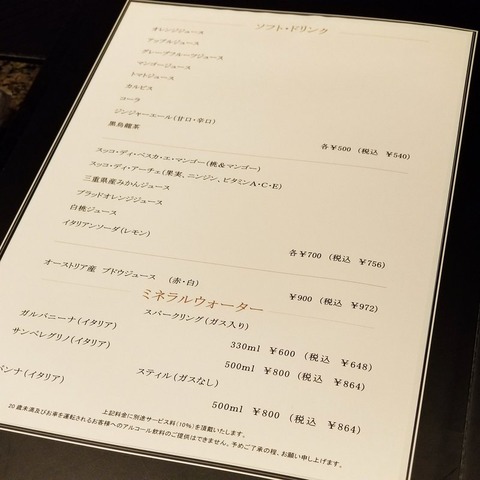 ソフト・ドリンク
オレンジジュース
アップルジュース
グレープフルーツジュース
マンゴージュース
トマトジュース
カルピス
コーラ
ジンジャーエール(甘口・辛口)
黒烏龍茶
各¥500 (税込 ¥540)
スッコ・ディ・ペスカ・エ・マンゴー(桃&マンゴー)
スッコ・ディ・アーチェ(果実、ニンジン、ビタミンA・C・E)
三重県産みかんジュース
ブラッドオレンジジュース
白桃ジュース
イタリアンソーダ(レモン)
各¥700 (税込 ¥756)
オーストリア産 ブドウジュース (赤・白) ¥900 (税込 ¥972)
ミネラルウォーター
ガルバニーナ(イタリア) スパークリング(ガス入り) 330ml ¥600 (税込 ¥648)
サンペレグリノ(イタリア) 500ml ¥800 (税込 ¥864)
ンナ(イタリア) スティル(ガスなし) 500ml ¥800 (税込 ¥864)
上記料金に別途サービス料(10%)を頂戴いたします。
20歳未満及びお車を運転されるお客様へのアルコール飲料のご提供はできません。予めご了承の程、お願い申し上げます。